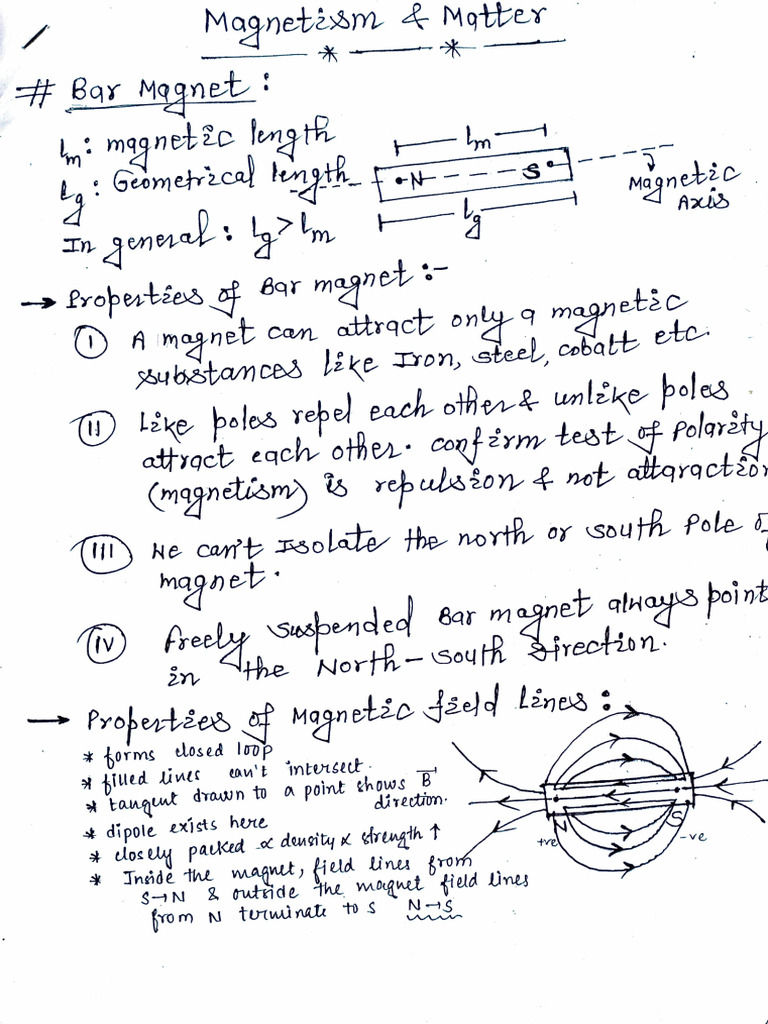 Magnetism & Matter
# Bar Magnet :
lm : magnetic length
lg : Geometrical length
In general : lg > lm
lm
N S
lg
Magnetic
Axis
→ Properties of Bar magnet :-
(I) A magnet can attract only a magnetic
substances like Iron, steel, cobalt etc.
(II) Like poles repel each other & unlike poles
attract each other. confirm test of polarity
(magnetism) is repulsion & not attaraction
(III) We can't Isolate the north or south Pole of
magnet.
(IV) freely suspended Bar magnet always point
in the North-south Direction.
→ Properties of Magnetic field Lines :
* forms closed loop
* filled lines can't intersect.
* tangent drawn to a point shows B⃗
direction.
* dipole exists here
* closely packed ∝ density ∝ strength ↑
* Inside the magnet, field lines from
S→N & outside the magnet field lines
from N terminate to S N→S
N S
+ve -ve